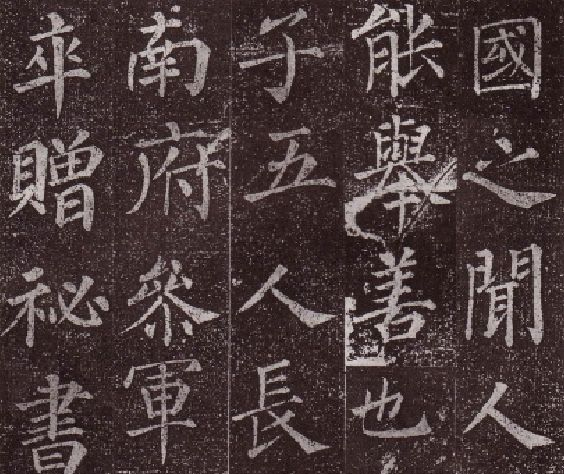 國之聞人
能舉善也
子五人長
南府參軍
卒贈祕書